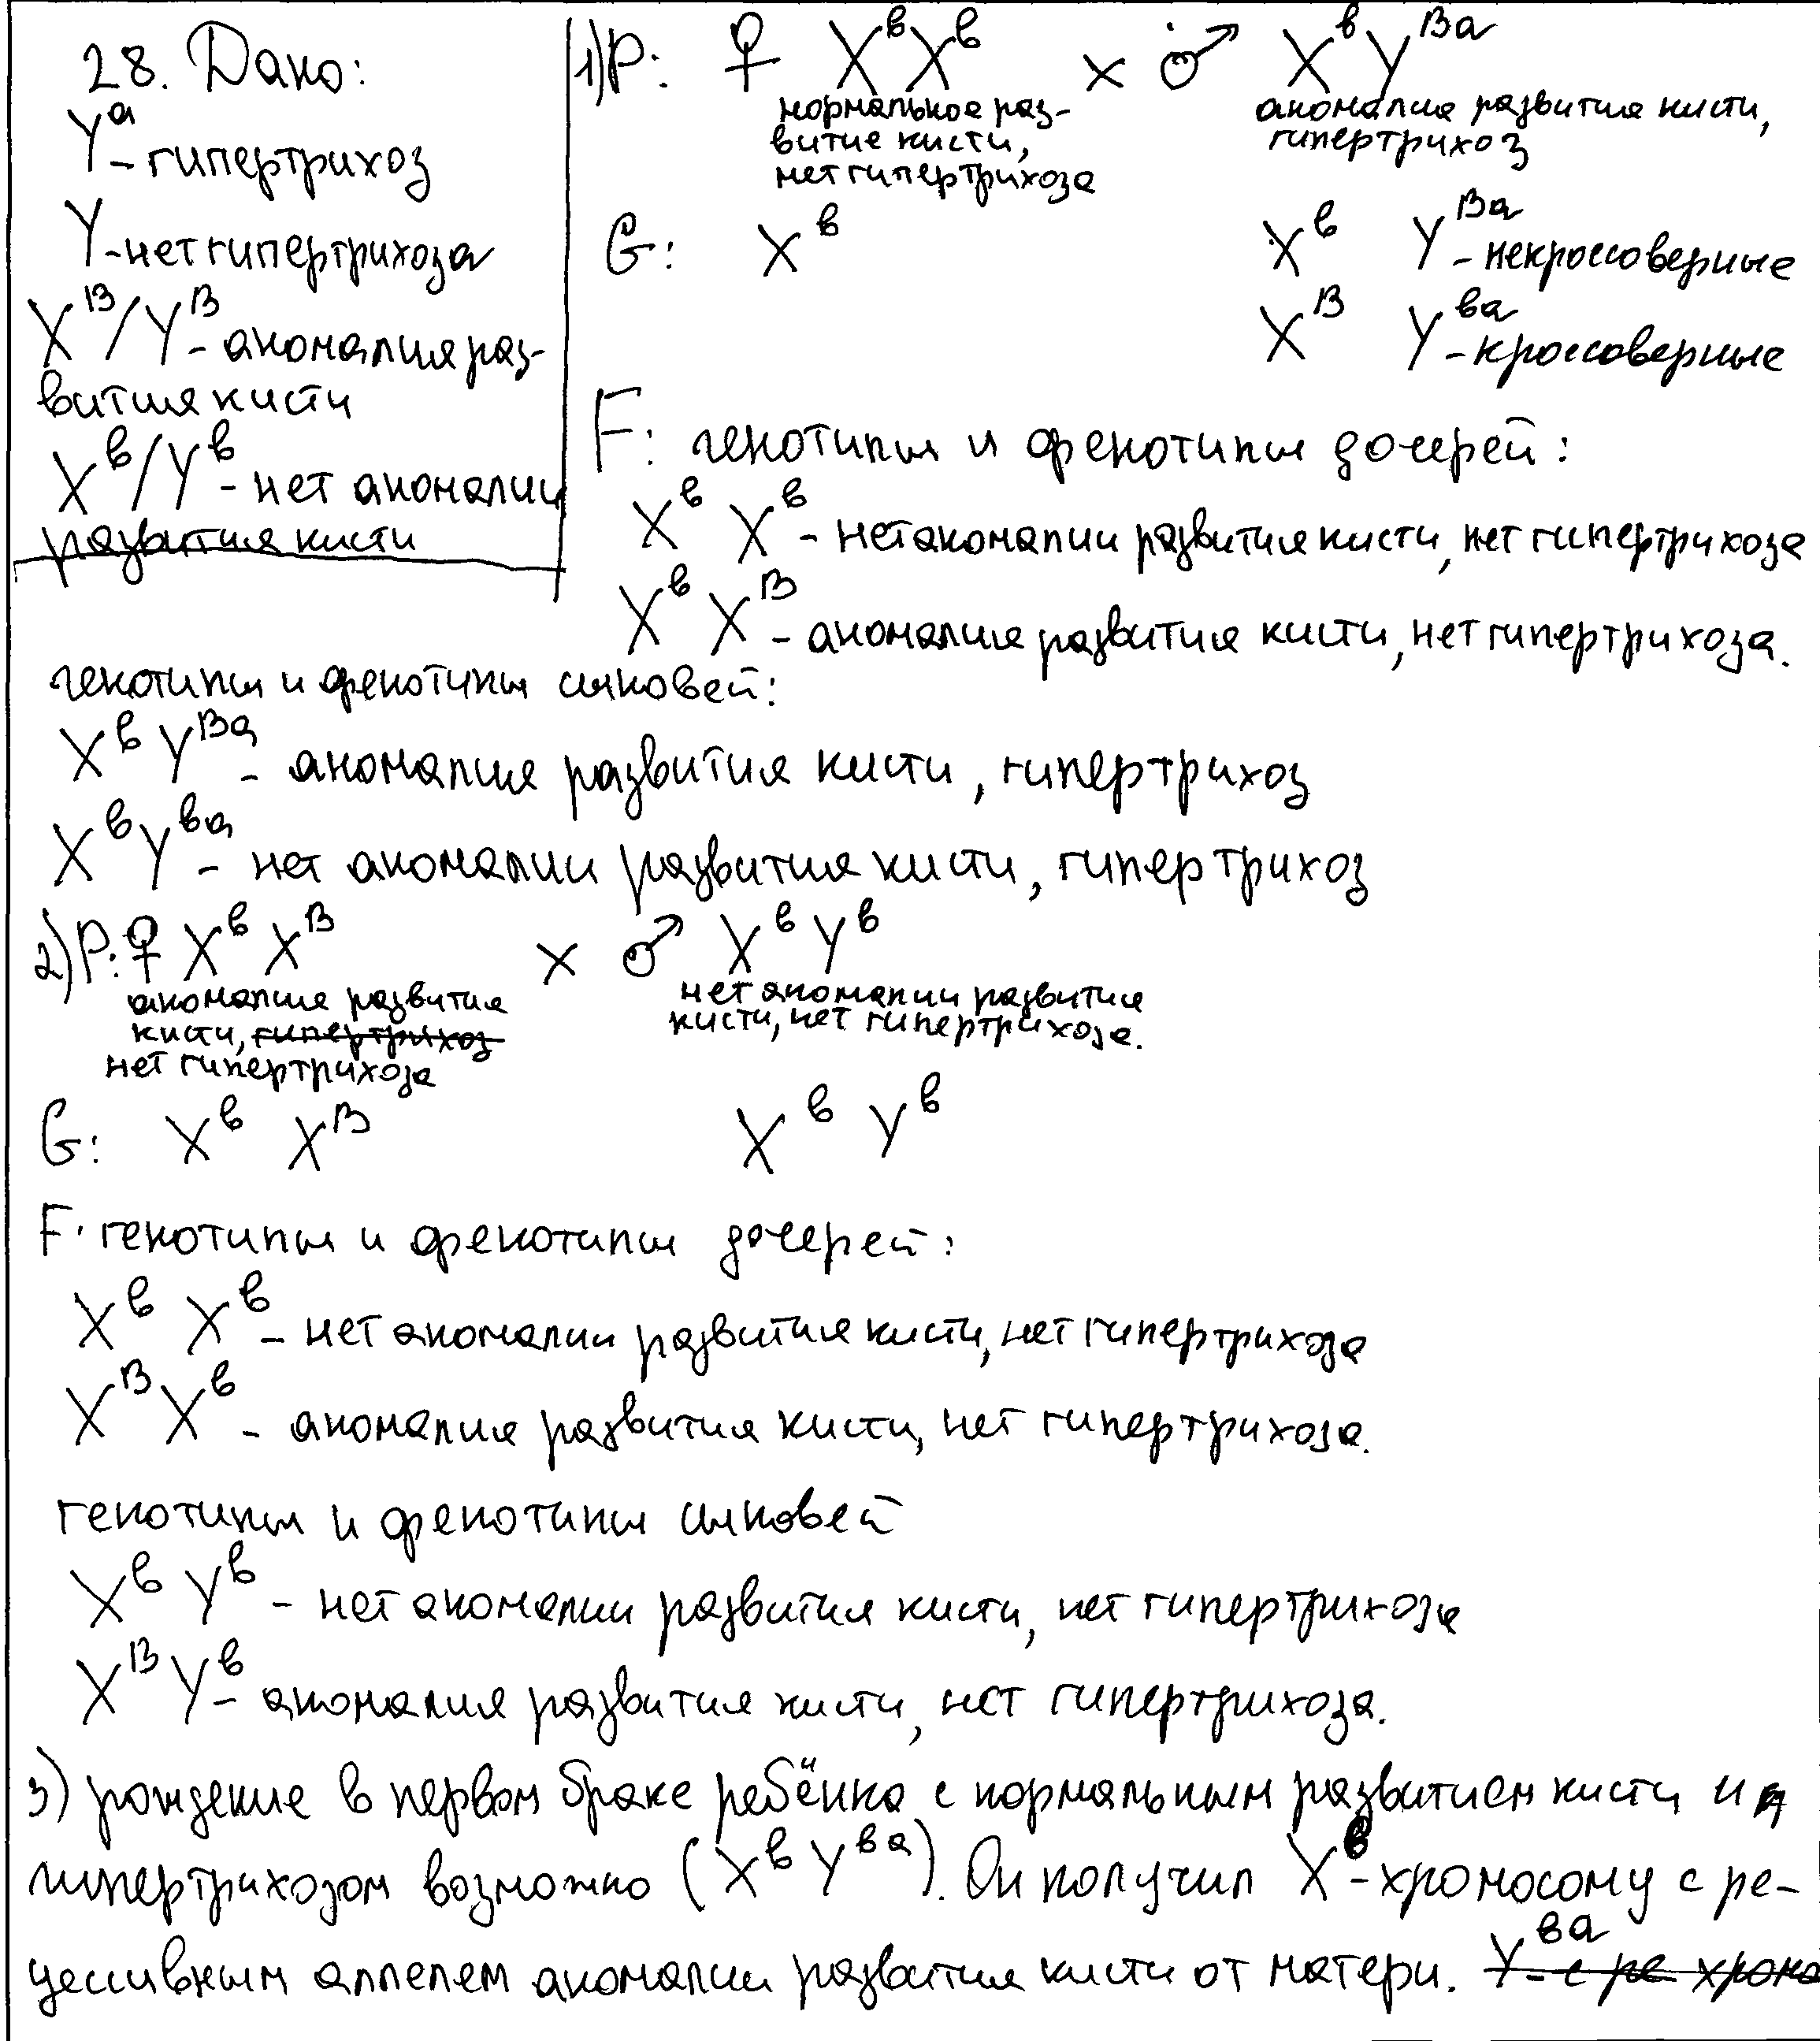 28. Дано:
Yᵃ - гипертрихоз
Y - нет гипертрихоза
Xᴮ/Yᴮ - аномалия раз-
вития кисти
Xᵇ/Yᵇ - нет аномалии
развития кисти
1) P: ♀ XᵇXᵇ × ♂ XᵇYᴮᵃ
нормальное раз-
витие кисти,
нет гипертрихоза
аномалия развития кисти,
гипертрихоз
G: Xᵇ Xᵇ Yᴮᵃ - некроссоверные
Xᴮ Yᵇᵃ - кроссоверные
F: генотипы и фенотипы дочерей:
Xᵇ Xᵇ - нет аномалии развития кисти, нет гипертрихоза
Xᵇ Xᴮ - аномалия развития кисти, нет гипертрихоза.
генотипы и фенотипы сыновей:
Xᵇ Yᴮᵃ - аномалия развития кисти, гипертрихоз
Xᵇ Yᵇᵃ - нет аномалии развития кисти, гипертрихоз
2) P: ♀ Xᵇ Xᴮ × ♂ Xᵇ Yᵇ
аномалия развития
кисти, гипертрихоз
нет гипертрихоза
нет аномалии развития
кисти, нет гипертрихоза.
G: Xᵇ Xᴮ Xᵇ Yᵇ
F: генотипы и фенотипы дочерей:
Xᵇ Xᵇ - нет аномалии развития кисти, нет гипертрихоза
Xᴮ Xᵇ - аномалия развития кисти, нет гипертрихоза.
генотипы и фенотипы сыновей
Xᵇ Yᵇ - нет аномалии развития кисти, нет гипертрихоза
Xᴮ Yᵇ - аномалия развития кисти, нет гипертрихоза.
3) рождение в первом браке ребёнка с нормальным развитием кисти и
гипертрихозом возможно (Xᵇ Yᵇᵃ). Он получил Xᵇ-хромосому с ре-
цессивным аллелем аномалии развития кисти от матери. Yᵇᵃ - с ре хромо